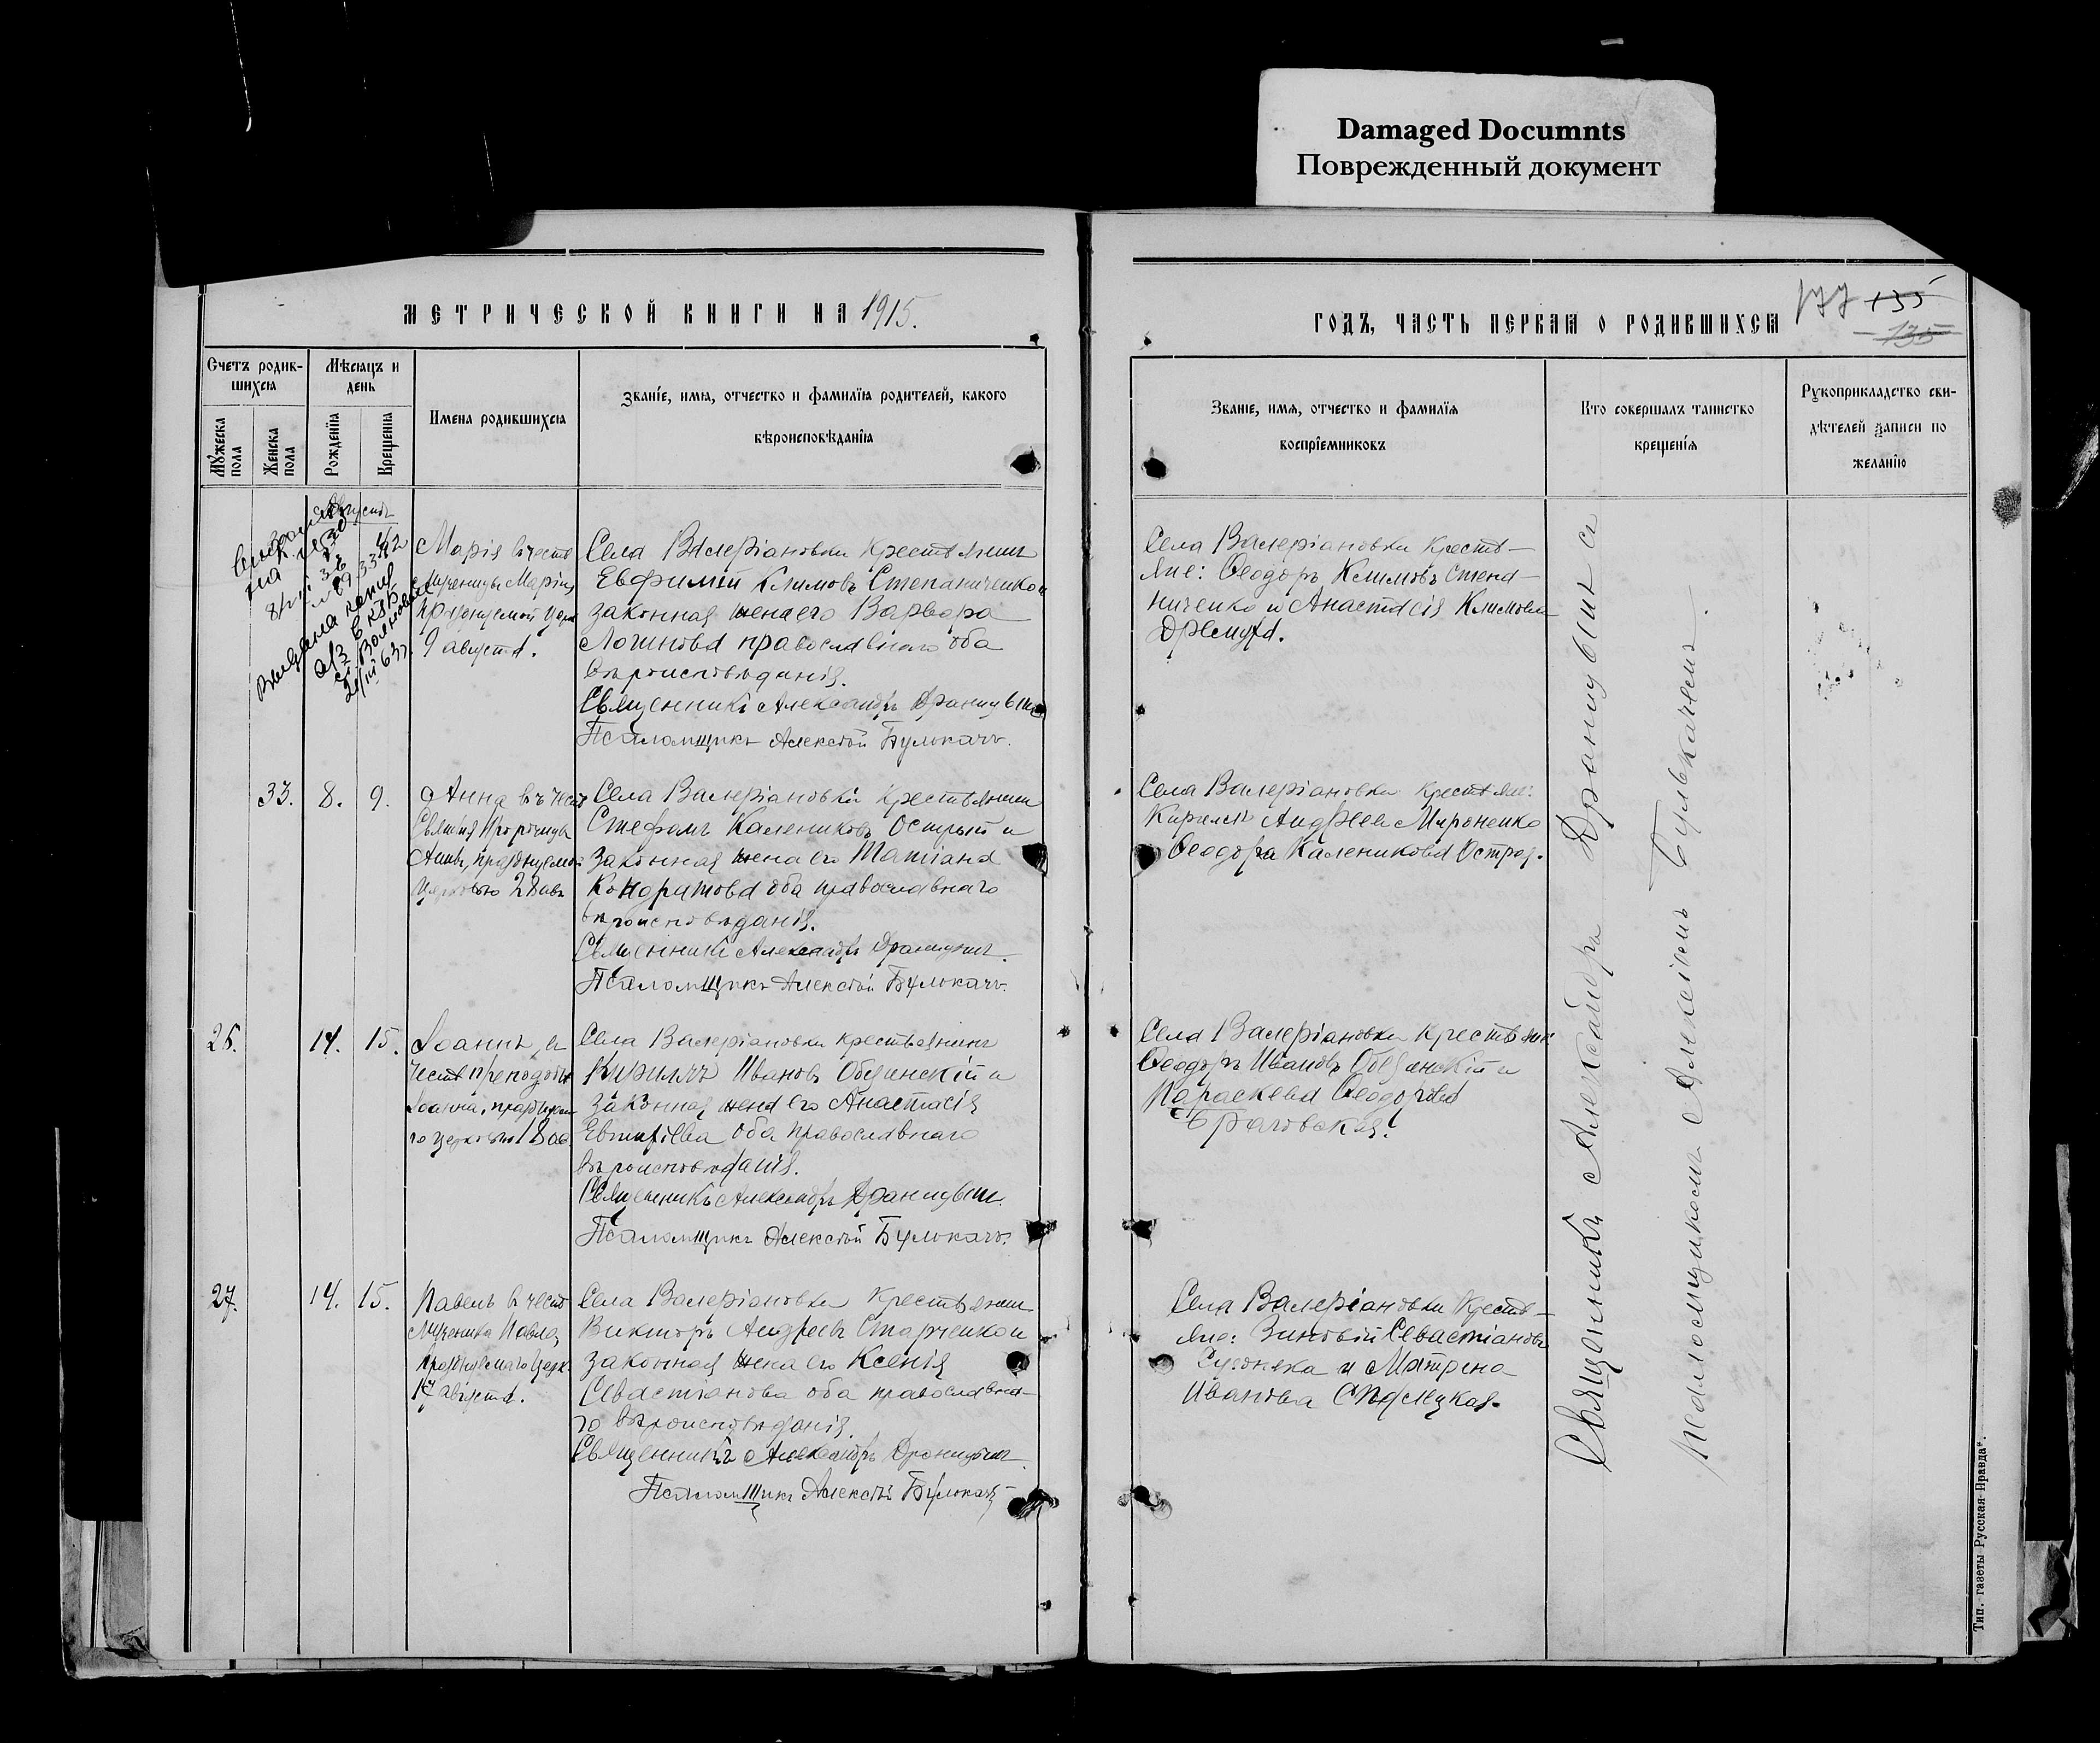 Damaged Documnts
Поврежденный документ
МЕТРИЧЕСКОЙ КНИГИ НА 1915.
ГОДЪ, ЧАСТЬ ПЕРВАЯ О РОДИВШИХСЯ
177 135
135
Счетъ родив-
шихся
Мѣсяцъ и
день
Мужеска
пола
Женска
пола
Рожденїя
Крещенїя
Имена родившихся
Званїе, имя, отчество и фамилїя родителей, какого
вѣроисповѣданїя
Званїе, имя, отчество и фамилїя
воспрїемниковъ
Кто совершалъ таинство
крещенїя
Рукоприкладство сви-
дѣтелей записи по
желанїю
Августъ
Марія въ честь
Мученицы Маріи,
празднуемой церк
9 августа.
Села Валеріановки крестьянинъ
Евфимій Климовъ Степаниченко и
законная жена его Варвара
Логинова православнаго оба
вѣроисповѣданія.
Священникъ Александръ
Псаломщикъ Алексѣй Булькачъ.
Села Валеріановки кресть-
яне: Ѳеодоръ Климовъ Степа-
ниченко и Анастасія Климова
33. 8. 9.
Анна въ честь
Святыя Пророчицы
Анны, празднуемой
Церковью 28 авг
Села Валеріановки крестьянинъ
Стефанъ Калениковъ Острый и
законная жена его Татіана
Кондратова оба православнаго
вѣроисповѣданія.
Священникъ Александръ
Псаломщикъ Алексѣй Булькачъ.
Села Валеріановки крестьяне:
Кириллъ Андреевъ Мироненко
Ѳеодора Календикова Острая.
26. 14. 15.
Іоаннъ, въ
честь преподобн
Іоанна, празднуема
го церковью 18 ав.
Села Валеріановки крестьянинъ
Кириллъ Ивановъ Обединскій и
законная жена его Анастасія
оба православнаго
вѣроисповѣданія.
Священникъ Александръ
Псаломщикъ Алексѣй Булькачъ.
Села Валеріановки крестьяне:
Ѳеодоръ Ивановъ и
Параскева Ѳеодорова
27. 14. 15.
Павелъ въ честь
Мученика Павла,
празднуемаго Церк
17 августа.
Села Валеріановки крестьянинъ
Викторъ Андреевъ Старченко и
законная жена его Ксенія
Севастіанова оба православна-
го вѣроисповѣданія.
Священникъ Александръ
Псаломщикъ Алексѣй Булькачъ
Села Валеріановки кресть-
яне: Зиновій Севастіановъ
и Матрена
Иванова
Священникъ Александръ съ
Псаломщикомъ Алексѣемъ Булькачемъ.
Тип. газеты Русская Правда".